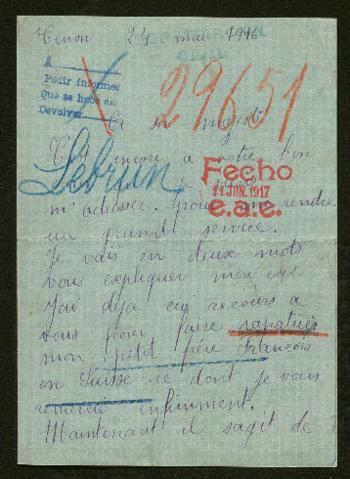 Cenon 25 mai 1916
A
Pedir informes
Que se hace en
Devolver
29651
A sa majesté
C'est encore a votre bon
Lebrun
Fecho
11 JUN. 1917
e.a.c.
m'adresser. pour me rendre
un grand service.
Je vais en deux mots
vous expliquer mon cas.
J'ai déja eu recours a
vous pour faire rapatrier
mon petit frére François
en Suisse ce dont je vous
remercie infiniment.
Maintenant il sagit de